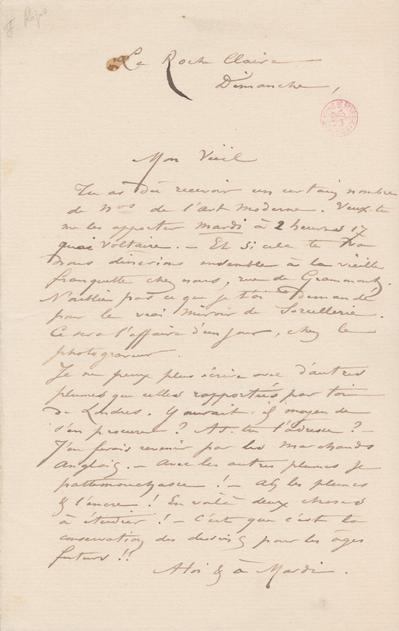 La Roche Claire
Dimanche,
Mon Vieil
Tu as dû recevoir un certain nombre
de nos de l'art moderne. Veux-tu
me les apporter mardi à 2 heures 17
quai Voltaire. — Et si cela te va
nous dînerions ensemble à la vieille
franquette chez nous, rue de Grammont.
N'oublie pas ce que je t'ai demandé
pour le vrai miroir de Sorcellerie.
Ce sera l'affaire d'un jour, chez le
photograveur.
Je ne peux plus écrire avec d'autres
plumes que celles rapportées par toi
de Londres. Y aurait-il moyen de
s'en procurer? As-tu l'adresse? —
J'en ferais revenir par les marchands
Anglais. — Avec les autres plumes je
pattemouchasse! — Ah les plumes
& l'encre! En voilà deux choses
à étudier! — C'est que c'est la
conservation des dessins pour les ages
futurs!!
à Mardi.